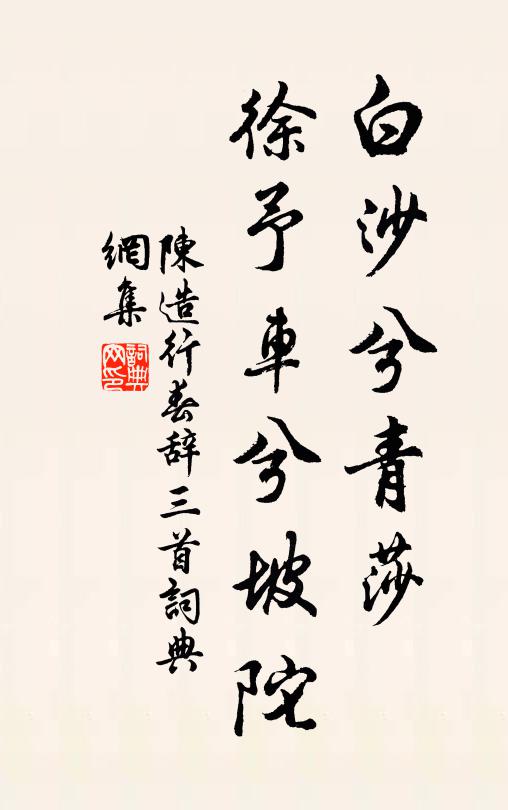 白沙兮青莎
徐予車兮坡陀
陳造行春辞三首詞典
網集
詞典